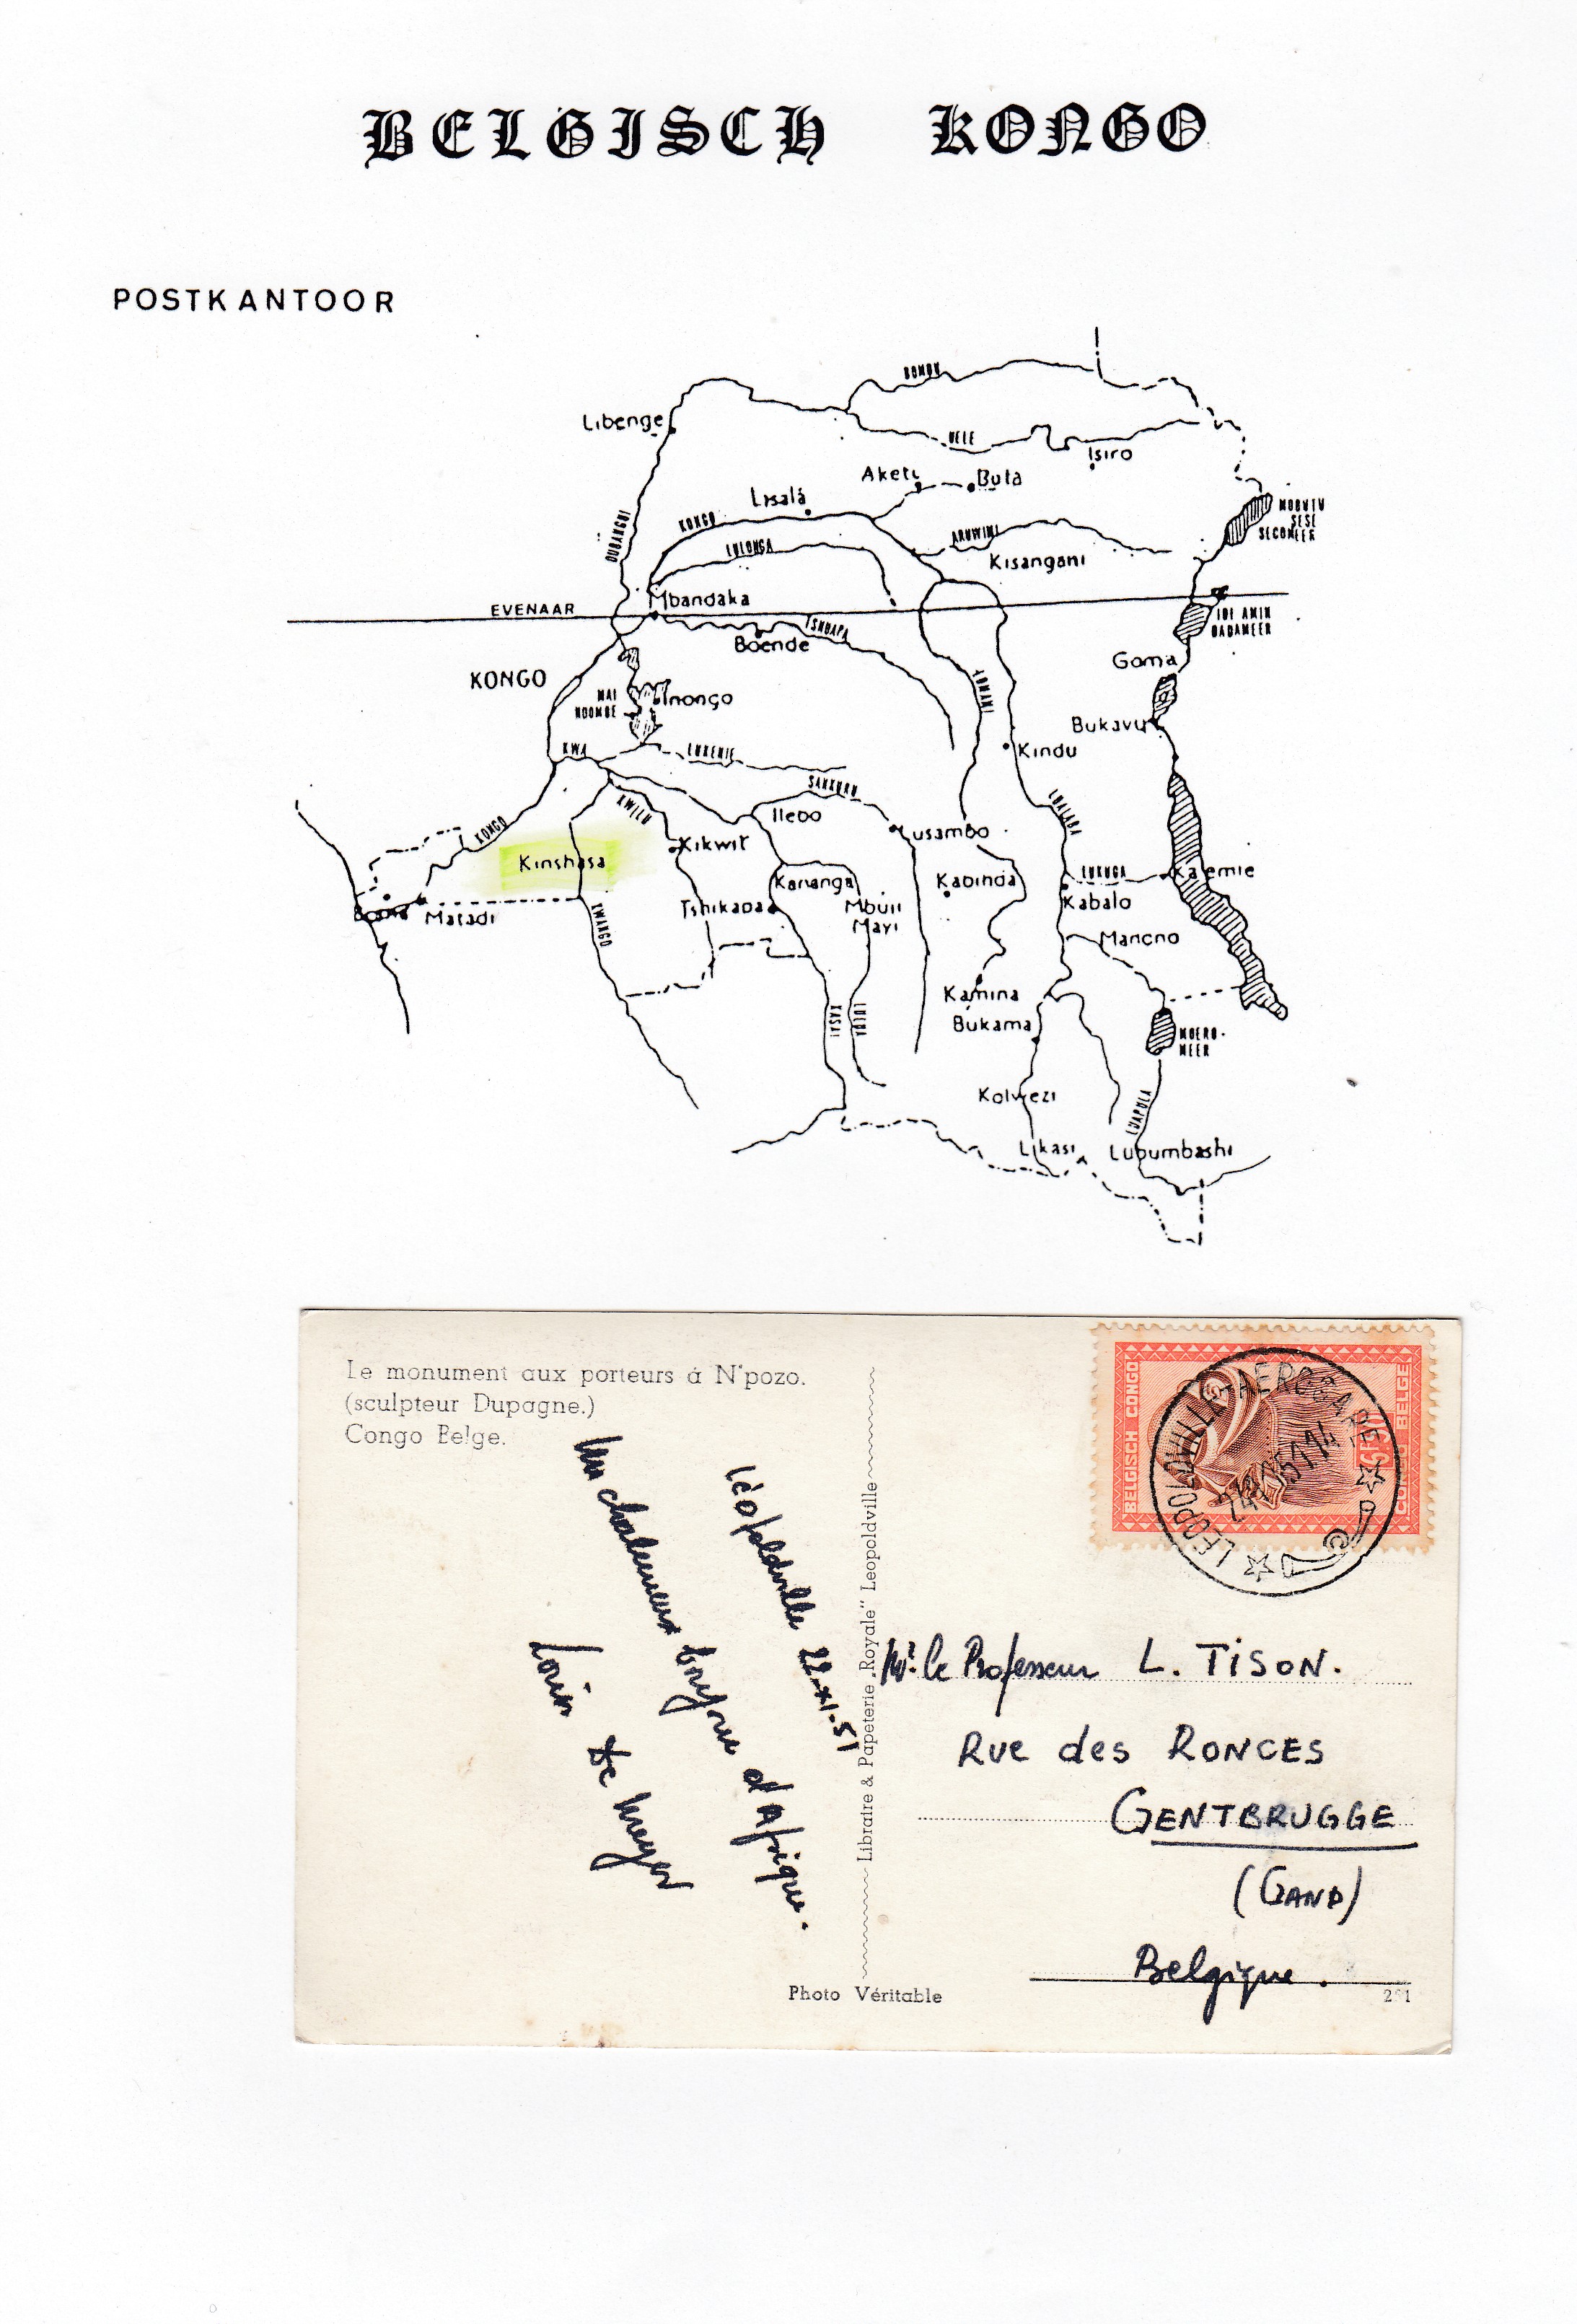 BELGISCH KONGO
POSTKANTOOR
BOMU
Libenge
UELE
Isiro
Aketi
Buta
Lisala
MOBUTU
SESE
SECOMEER
OUBANGUI
KONGO
ARUWIMI
LULONGA
Kisangani
Mbandaka
EVENAAR
IDI AMIN
DADAMEER
TSHUAPA
Boende
Goma
KONGO
LOMAMI
MAI
NDOMBE
Inongo
Bukavu
KWA
LUKENIE
Kindu
SANKURU
KWILU
Ilebo
LUALABA
KONGO
Lusambo
Kikwit
Kinshasa
LUKUGA
Kalemie
Kananga
Kabinda
Boma
Matadi
Tshikapa
Mbuji
Mayi
Kabalo
KWANGO
Manono
Kamina
KASAI
LULUA
Bukama
MOERO-
MEER
Kolwezi
LUAPULA
Likasi
Lubumbashi
Le monument aux porteurs à N'pozo.
(sculpteur Dupagne.)
Congo Belge.
BELGISCH CONGO
CONGO BELGE
LEOPOLDVILLE-AEROGARE
Léopoldville 22-XI-51
Un chaleureux bonjour d'Afrique.
Louis De Meyer
Libraire & Papeterie „Royale" Leopoldville
Mr. le Professeur L. TISON.
Rue des RONCES
GENTBRUGGE
(GAND)
Belgique.
Photo Véritable